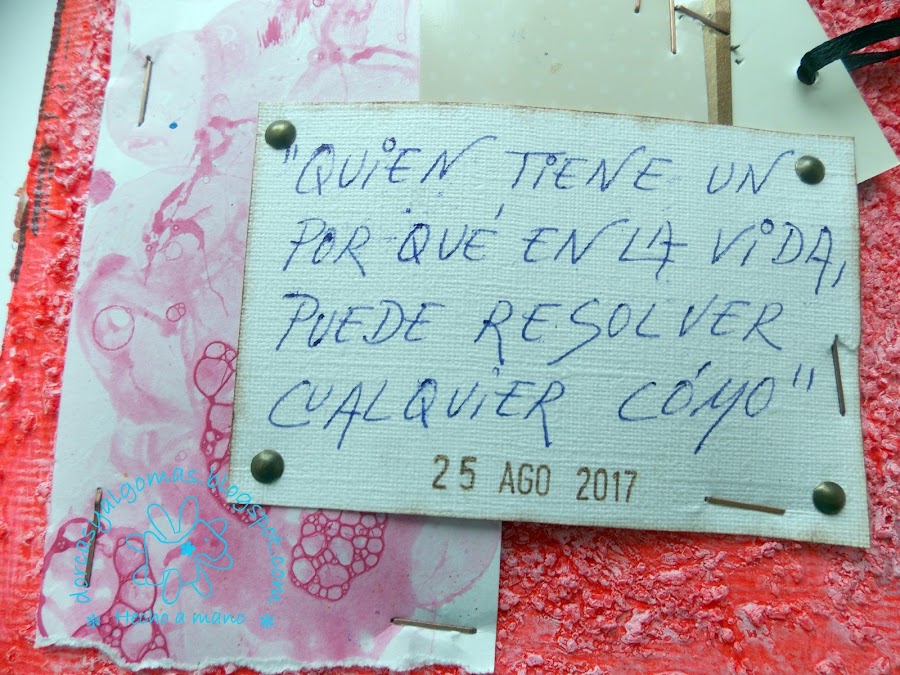 "QUIEN TIENE UN
POR QUÉ EN LA VIDA,
PUEDE RESOLVER
CUALQUIER CÓMO"
25 AGO 2017
dorcasyalgomas.blogspot.com
* Hecho a mano *